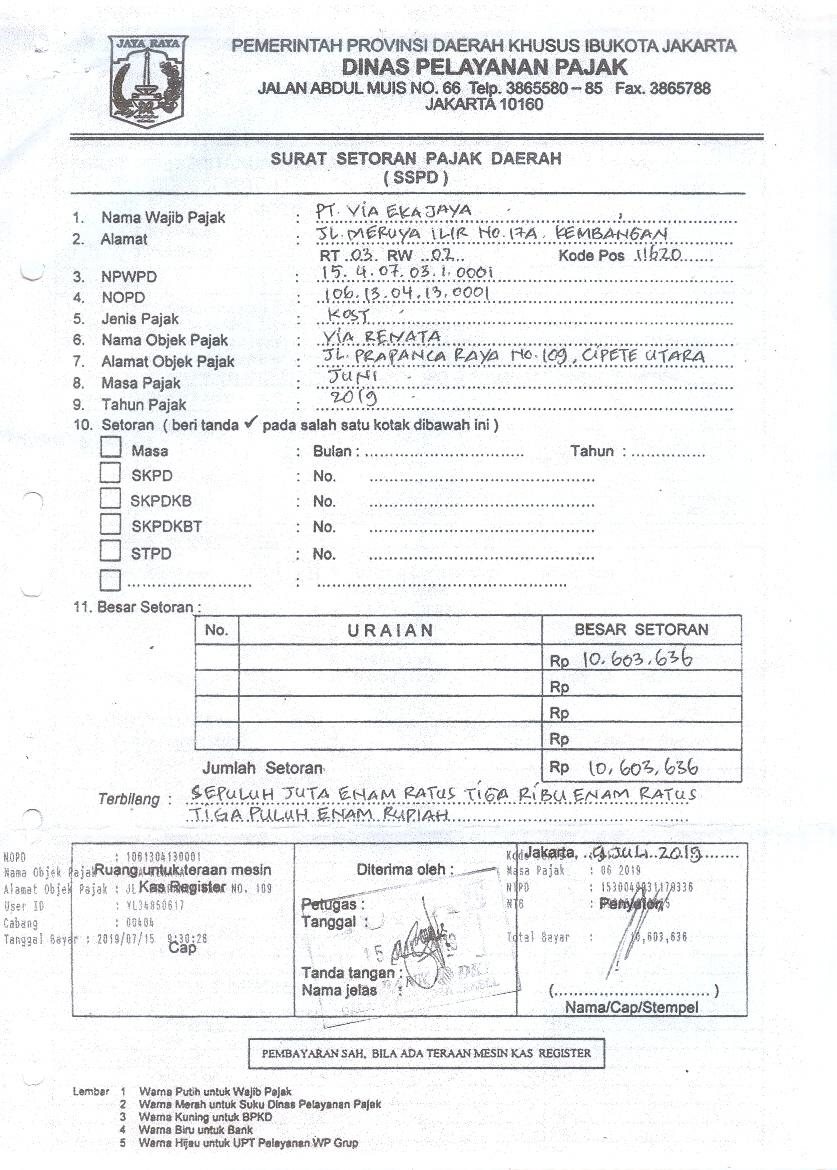 JAYA RAYA
PEMERINTAH PROVINSI DAERAH KHUSUS IBUKOTA JAKARTA
DINAS PELAYANAN PAJAK
JALAN ABDUL MUIS NO. 66 Telp. 3865580 – 85 Fax. 3865788
JAKARTA 10160
SURAT SETORAN PAJAK DAERAH
( SSPD )
1. Nama Wajib Pajak : PT. VIA EKA JAYA
2. Alamat : JL. MERUYA ILIR NO. 17A. KEMBANGAN
RT 03. RW 02. Kode Pos 11620
3. NPWPD : 15. 4. 07. 03. 1. 0001
4. NOPD : 106. 13. 04. 13. 0001
5. Jenis Pajak : KOST
6. Nama Objek Pajak : VIA RENATA
7. Alamat Objek Pajak : JL. PRAPANCA RAYA NO. 109, CIPETE UTARA
8. Masa Pajak : JUNI
9. Tahun Pajak : 2019
10. Setoran ( beri tanda ✓ pada salah satu kotak dibawah ini )
Masa : Bulan : Tahun :
SKPD : No.
SKPDKB : No.
SKPDKBT : No.
STPD : No.
11. Besar Setoran :
No. URAIAN BESAR SETORAN
Rp 10.603.636
Rp
Rp
Rp
Jumlah Setoran Rp 10,603,636
Terbilang : SEPULUH JUTA ENAM RATUS TIGA RIBU ENAM RATUS
TIGA PULUH ENAM RUPIAH
Ruang untuk teraan mesin
Kas Register
Cap
NOPD : 1061304130001
Nama Objek Pajak
Alamat Objek Pajak : JL NO. 109
User ID : YL34850617
Cabang : 00404
Tanggal Bayar : 2019/07/15 9:30:28
Diterima oleh :
Petugas :
Tanggal :
15
BANK DKI
Tanda tangan :
Nama jelas :
Jakarta, 9 JULI 2019
Masa Pajak : 06 2019
NTPD
NTB
Penyetor
Total Bayar : 10,603,636
( )
Nama/Cap/Stempel
PEMBAYARAN SAH, BILA ADA TERAAN MESIN KAS REGISTER
Lembar 1 Warna Putih untuk Wajib Pajak
2 Warna Merah untuk Suku Dinas Pelayanan Pajak
3 Warna Kuning untuk BPKD
4 Warna Biru untuk Bank
5 Warna Hijau untuk UPT Pelayanan WP Grup